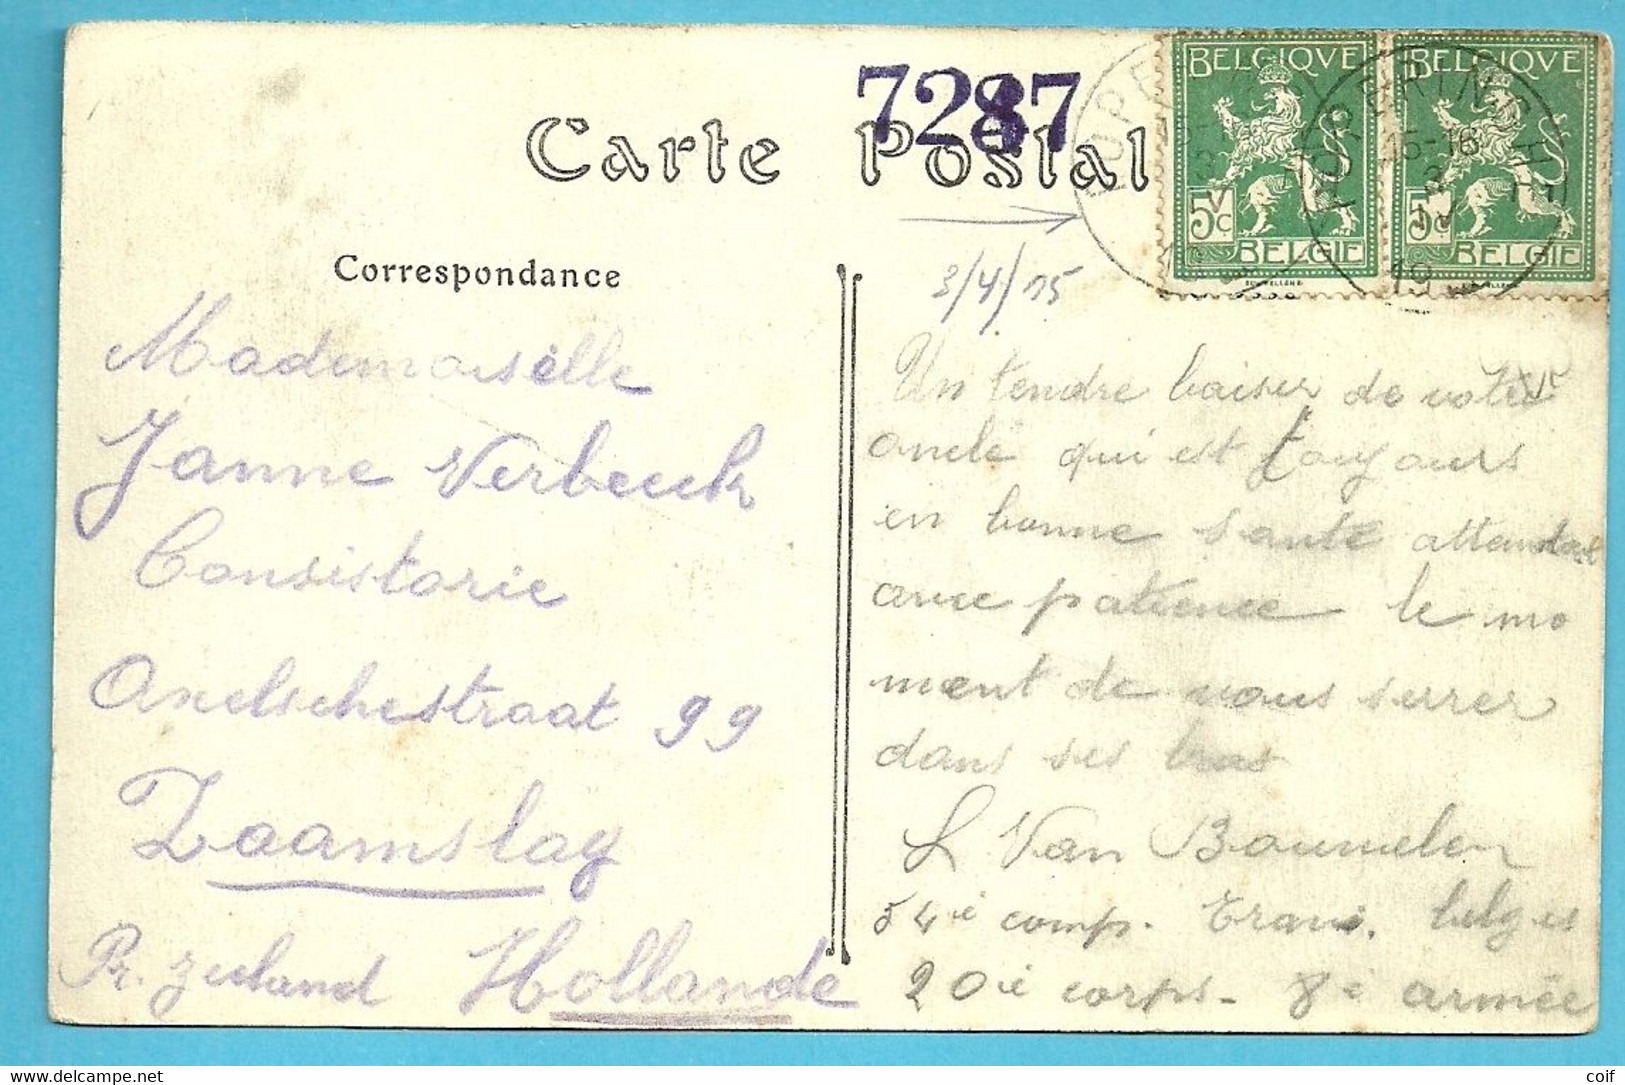 7287
Carte Postal
BELGIQVE
5c
BELGIE
BELGIQVE
5c
BELGIE
POPERINGHE
15-16
3
IV
19
3/4/15
Correspondance
Mademoiselle
Janne Verbeeck
Consistorie
Axelschestraat 99
Zaamslag
Pr. Zeeland Hollande
Un tendre baiser de votre
oncle qui est toujours
en bonne santé attendant
avec patience le mo
ment de vous serrer
dans ses bras
L Van Boumelen
54e comp. Trav. belges
20e corps - 8e armée
coif